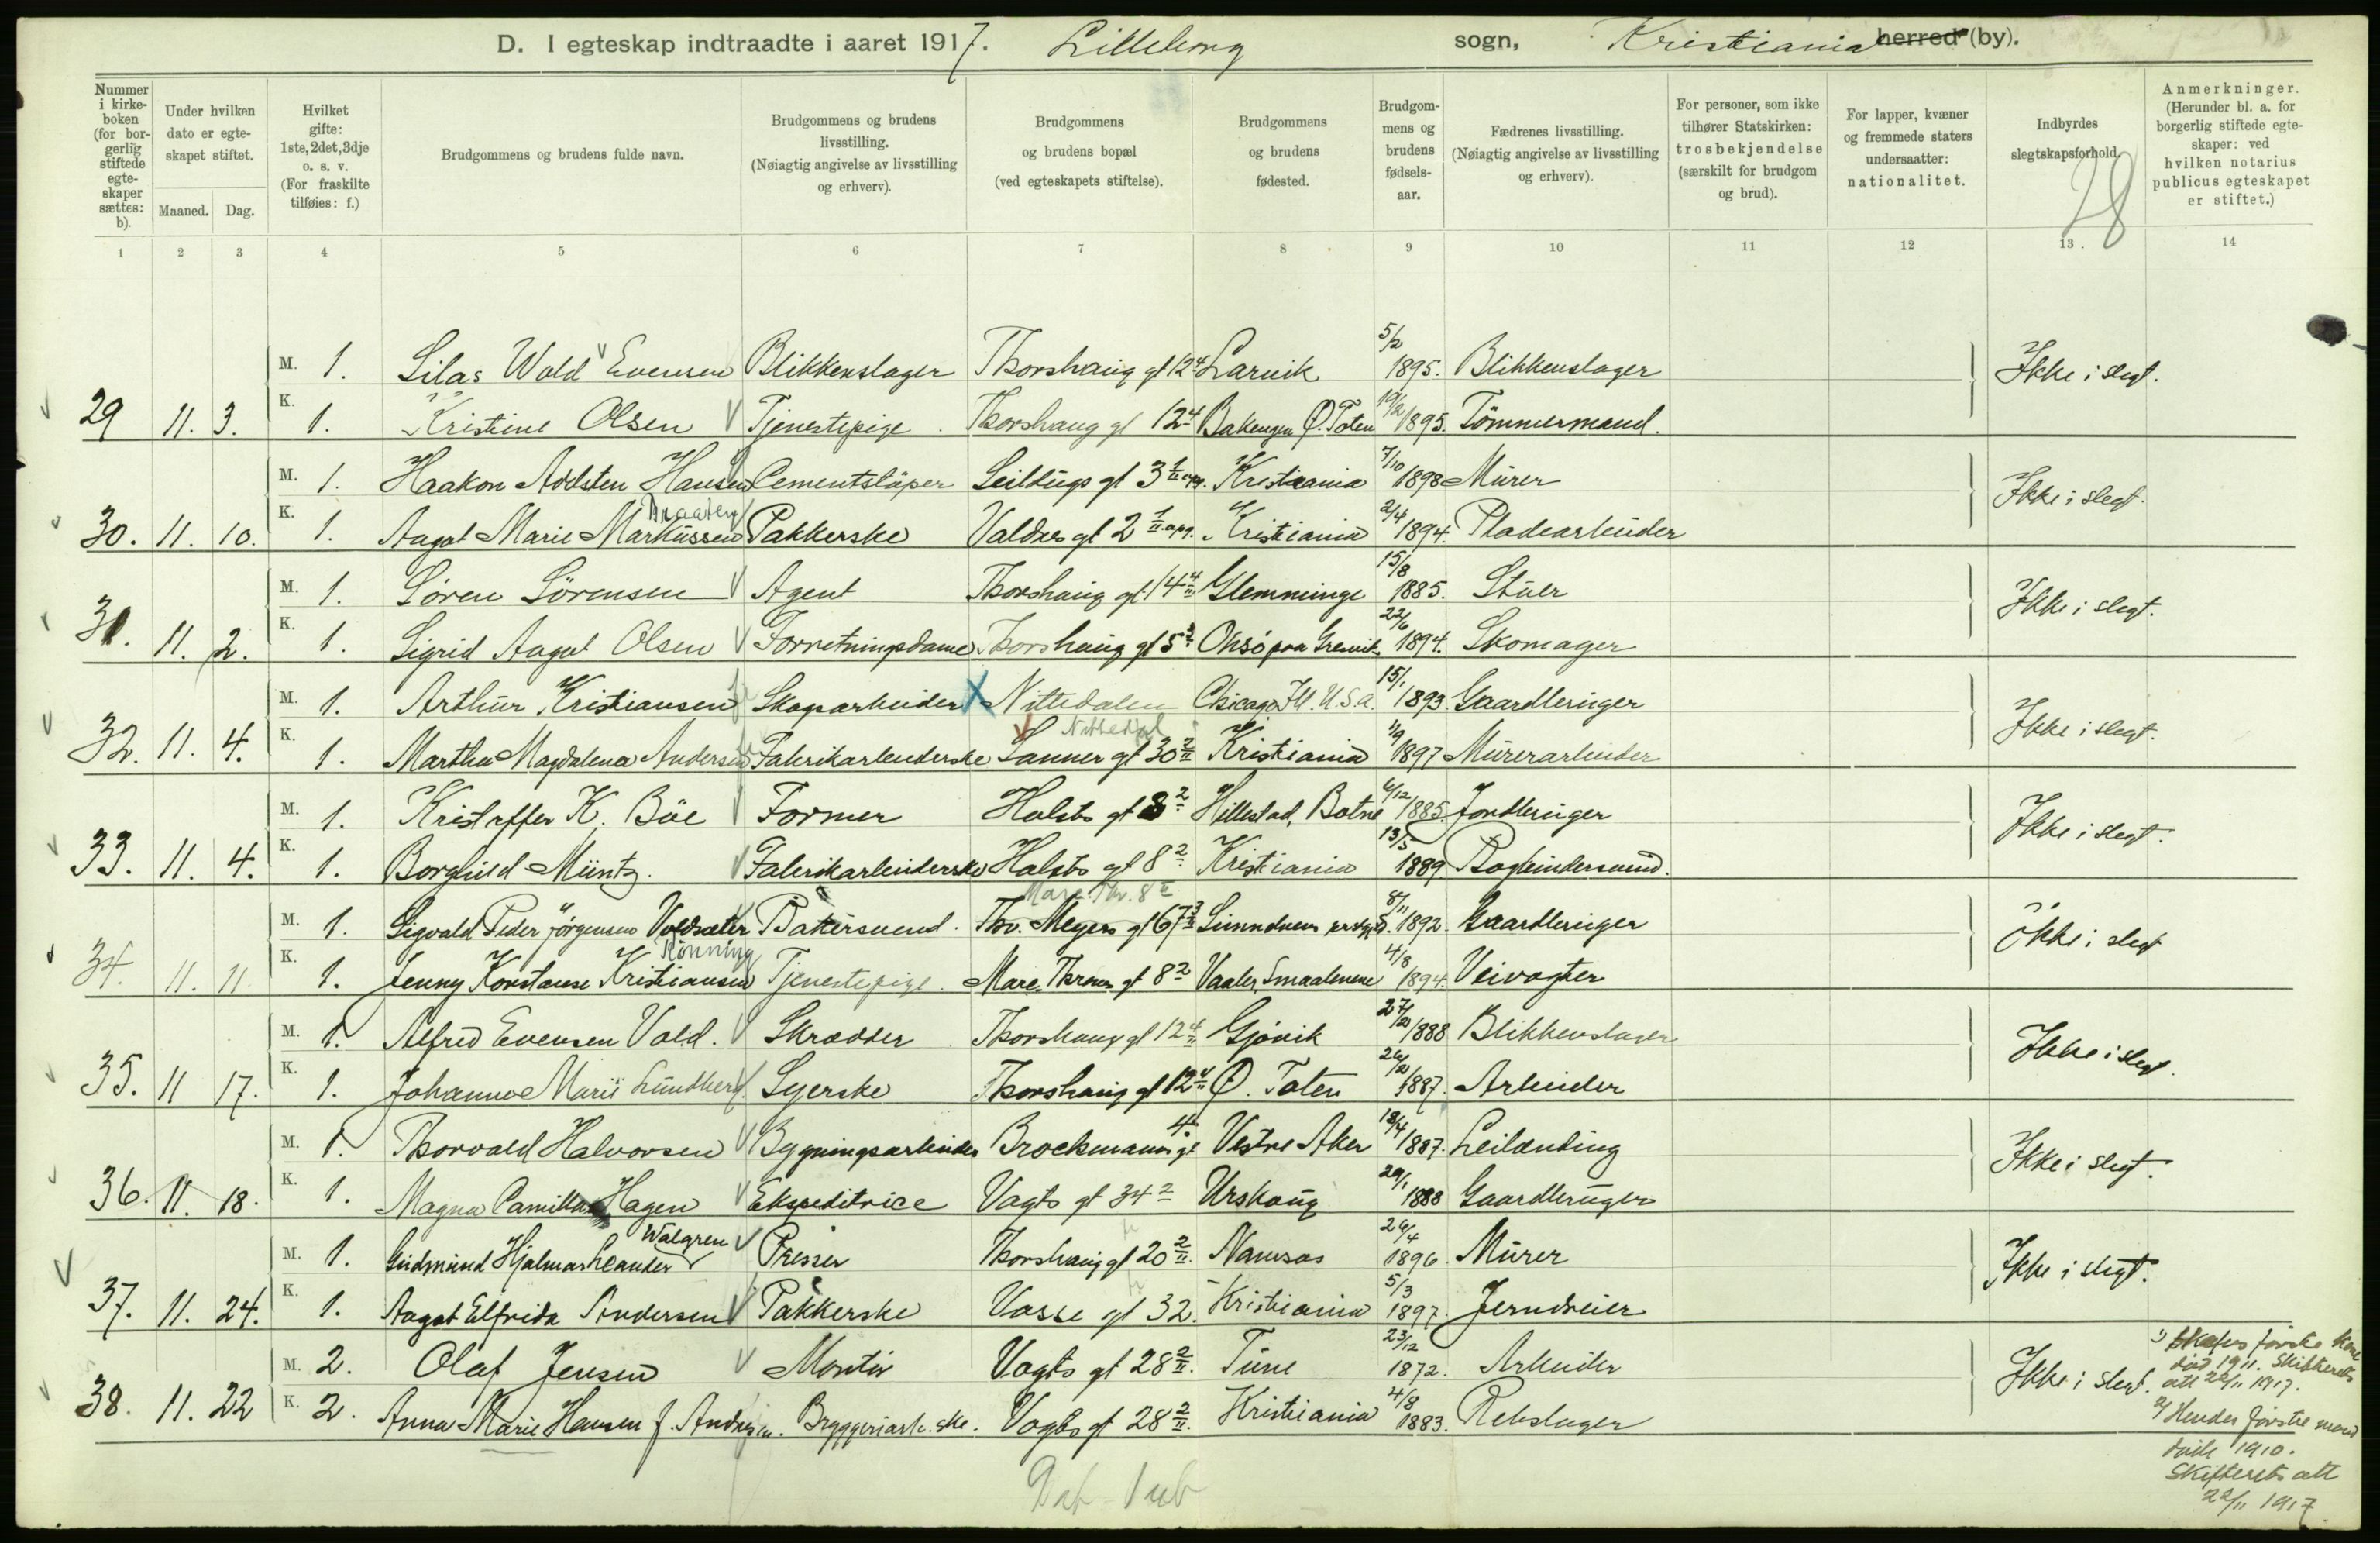 D. I egteskap indtraadte i aaret 1917. Lilleborg sogn, Kristiania herred (by).
Nummer i kirke-boken (for bor-gerlig stiftede egte-skaper sættes: b).
Under hvilken dato er egte-skapet stiftet.
Maaned. Dag.
Hvilket gifte: 1ste, 2det, 3dje o. s. v. (For fraskilte tilføies: f.)
Brudgommens og brudens fulde navn.
Brudgommens og brudens livsstilling. (Nøiagtig angivelse av livsstilling og erhverv).
Brudgommens og brudens bopæl (ved egteskapets stiftelse).
Brudgommens og brudens fødested.
Brudgom-mens og brudens fødsels-aar.
Fædrenes livsstilling. (Nøiagtig angivelse av livsstilling og erhverv).
For personer, som ikke tilhører Statskirken: trosbekjendelse (særskilt for brudgom og brud).
For lapper, kvæner og fremmede staters undersaatter: nationalitet.
Indbyrdes slegtskapsforhold.
28
Anmerkninger. (Herunder bl. a. for borgerlig stiftede egte-skaper: ved hvilken notarius publicus egteskapet er stiftet.)
1 2 3 4 5 6 7 8 9 10 11 12 13 14
M. 1. Silas Wold Evensen Blikkenslager Thorshaug gt 12 4 Larvik 5/2 1895. Blikkenslager Ikke i slegt.
29 11. 3. K. 1. Kristine Olsen Tjenestepige Thorshaug gt 12 4 Bakengen Ø. Toten 19/2 1895. Tömmermand.
M. 1. Haakon Adelsten Hansen Cementstöper Seildugs gt 3 1/II opg. Kristiania 7/10 1898 Murer Ikke i slegt.
Braaten
30. 11. 10. K. 1. Aagot Marie Markussen Pakkerske Valdres gt 2 1/II opg. Kristiania 2/4 1894. Pladearbeider
M. 1. Sören Sörensen Agent Thorshaug gt 14 4/III Glemminge 15/8 1885. Stuer Ikke i slegt.
31. 11. 2. K. 1. Sigrid Aagot Olsen Forretningsdame Thorshaug gt 5 Onsö 22/6 1894. Skomager
M. 1. Arthur Kristiansen Skogsarbeider X Nittedalen Chicago Ill. U.S.A. 15/1 1893. Gaardbruger Ikke i slegt.
Nittedal
32. 11. 4. K. 1. Martha Magdalena Andersen Fabrikarbeiderske Sanner gt 30 2/II Kristiania 1/9 1897 Murerarbeider
M. 1. Kristoffer K. Böe Former Holsts gt 8 2 Hillestad, Botne 6/12 1885. Jordbruger Ikke i slegt.
33. 11. 4. K. 1. Borghild Müntz. Fabrikarbeiderske Holsts gt 8 2 Kristiania 13/5 1889 Bogbindersvend.
Marc. Thr. 8 II
M. 1. Sigvald Peder Jörgensen Voldsæter Bakersvend. Thv. Meyers gt 67 3/II Sunndvens prstgjd. 8/11 1892. Gaardbruger Ikke i slegt
Rönning
34. 11. 11 K. 1. Jenny Konstanse Kristiansen Tjenestepige. Marc. Thranes gt 8 2 Vaaler, Smaalenene 4/8 1894. Veivogter
M. 1. Alfred Evensen Vold. Skrædder Thorshaug gt 12 4/II Gjövik 27/2 1888 Blikkenslager Ikke i slegt.
35. 11 17. K. 1. Johanne Marie Lundberg. Syerske Thorshaug gt 12 4/II Ø. Toten 26/2 1887. Arbeider
M. 1. Thorvald Halvorsen Bygningsarbeider Brochmanns gt 4. Vestre Aker 18/4 1887. Leilænding Ikke i slegt.
36. 11. 18. K. 1. Magna Camilla Hagen Ekspeditrice Vogts gt 34 2 Urskoug 29/1 1888 Gaardbruger
Walgren
M. 1. Gudmund Hjalmar Leander Presser Thorshaug gt 20 2/II. Namsos 24/4 1896. Murer Ikke i slegt.
37. 11. 24. K. 1. Aagot Elfrida Andersen Pakkerske Vosse gt 32. Kristiania 5/3 1897. Jerndreier
M. 2. Olaf Jensen Montör Vogts gt 28 2/II. Tune 23/12 1872. Arbeider Ikke i slegt.
38. 11. 22 K. 2. Anna Marie Hansen f. Andresen. Bryggeriarb.ske. Vogts gt 28 2/II. Kristiania 4/8 1883. Rebslager
1) förste kone
död 1911. Skifterets
att 22/11 1917.
2) Hendes förste mand
döde 1910.
Skifterets att
22/11 1917